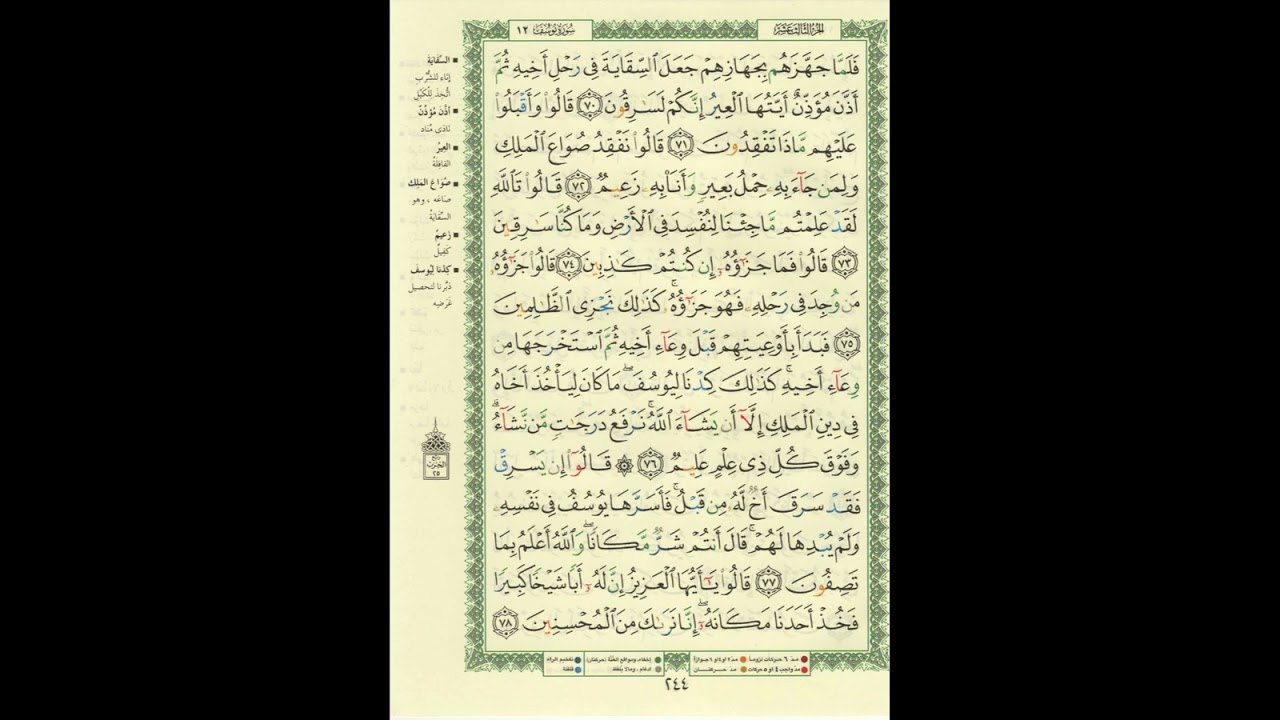 الجزء الثالث عشر
سورة يوسف ١٢
فَلَمَّا جَهَّزَهُم بِجَهَازِهِمْ جَعَلَ ٱلسِّقَايَةَ فِى رَحْلِ أَخِيهِ ثُمَّ
أَذَّنَ مُؤَذِّنٌ أَيَّتُهَا ٱلْعِيرُ إِنَّكُمْ لَسَٰرِقُونَ ٧٠ قَالُوا۟ وَأَقْبَلُوا۟
عَلَيْهِم مَّاذَا تَفْقِدُونَ ٧١ قَالُوا۟ نَفْقِدُ صُوَاعَ ٱلْمَلِكِ
وَلِمَن جَآءَ بِهِۦ حِمْلُ بَعِيرٍ وَأَنَا۠ بِهِۦ زَعِيمٌ ٧٢ قَالُوا۟ تَٱللَّهِ
لَقَدْ عَلِمْتُم مَّا جِئْنَا لِنُفْسِدَ فِى ٱلْأَرْضِ وَمَا كُنَّا سَٰرِقِينَ
٧٣ قَالُوا۟ فَمَا جَزَٰٓؤُهُۥٓ إِن كُنتُمْ كَٰذِبِينَ ٧٤ قَالُوا۟ جَزَٰٓؤُهُۥ
مَن وُجِدَ فِى رَحْلِهِۦ فَهُوَ جَزَٰٓؤُهُۥ ۚ كَذَٰلِكَ نَجْزِى ٱلظَّٰلِمِينَ
٧٥ فَبَدَأَ بِأَوْعِيَتِهِمْ قَبْلَ وِعَآءِ أَخِيهِ ثُمَّ ٱسْتَخْرَجَهَا مِن
وِعَآءِ أَخِيهِ ۚ كَذَٰلِكَ كِدْنَا لِيُوسُفَ ۖ مَا كَانَ لِيَأْخُذَ أَخَاهُ
فِى دِينِ ٱلْمَلِكِ إِلَّآ أَن يَشَآءَ ٱللَّهُ ۚ نَرْفَعُ دَرَجَٰتٍ مَّن نَّشَآءُ ۗ
وَفَوْقَ كُلِّ ذِى عِلْمٍ عَلِيمٌ ٧٦ ۞ قَالُوٓا۟ إِن يَسْرِقْ
فَقَدْ سَرَقَ أَخٌ لَّهُۥ مِن قَبْلُ ۚ فَأَسَرَّهَا يُوسُفُ فِى نَفْسِهِۦ
وَلَمْ يُبْدِهَا لَهُمْ ۚ قَالَ أَنتُمْ شَرٌّ مَّكَانًا ۖ وَٱللَّهُ أَعْلَمُ بِمَا
تَصِفُونَ ٧٧ قَالُوا۟ يَٰٓأَيُّهَا ٱلْعَزِيزُ إِنَّ لَهُۥٓ أَبًا شَيْخًا كَبِيرًا
فَخُذْ أَحَدَنَا مَكَانَهُۥٓ ۖ إِنَّا نَرَىٰكَ مِنَ ٱلْمُحْسِنِينَ ٧٨
السِّقَايَةَ
إناءً للشُّرْبِ
اتُّخِذَ لِلْكَيْلِ
أذَّنَ مُؤَذِّنٌ
نَادَى مُنَادٍ
العِيرُ
القافِلَةُ
صُوَاعَ المَلِكِ
صَاعَه ، وهو
السِّقَايَةُ
زَعِيمٌ
كَفِيلٌ
كِدْنَا لِيُوسفَ
دَبَّرنا لتحصيلِ
غَرَضِه
الحزب
٢٥
مدّ ٦ حركات لزوماً
مدّ ٢ أو ٤ أو ٦ جوازاً
إخفاء، ومواقع الغُنَّة (حركتان)
تفخيم الراء
مدّ واجب ٤ أو ٥ حركات
مدّ حركتان
إدغام ، وما لا يُلفَظ
قلقلة
٢٤٤